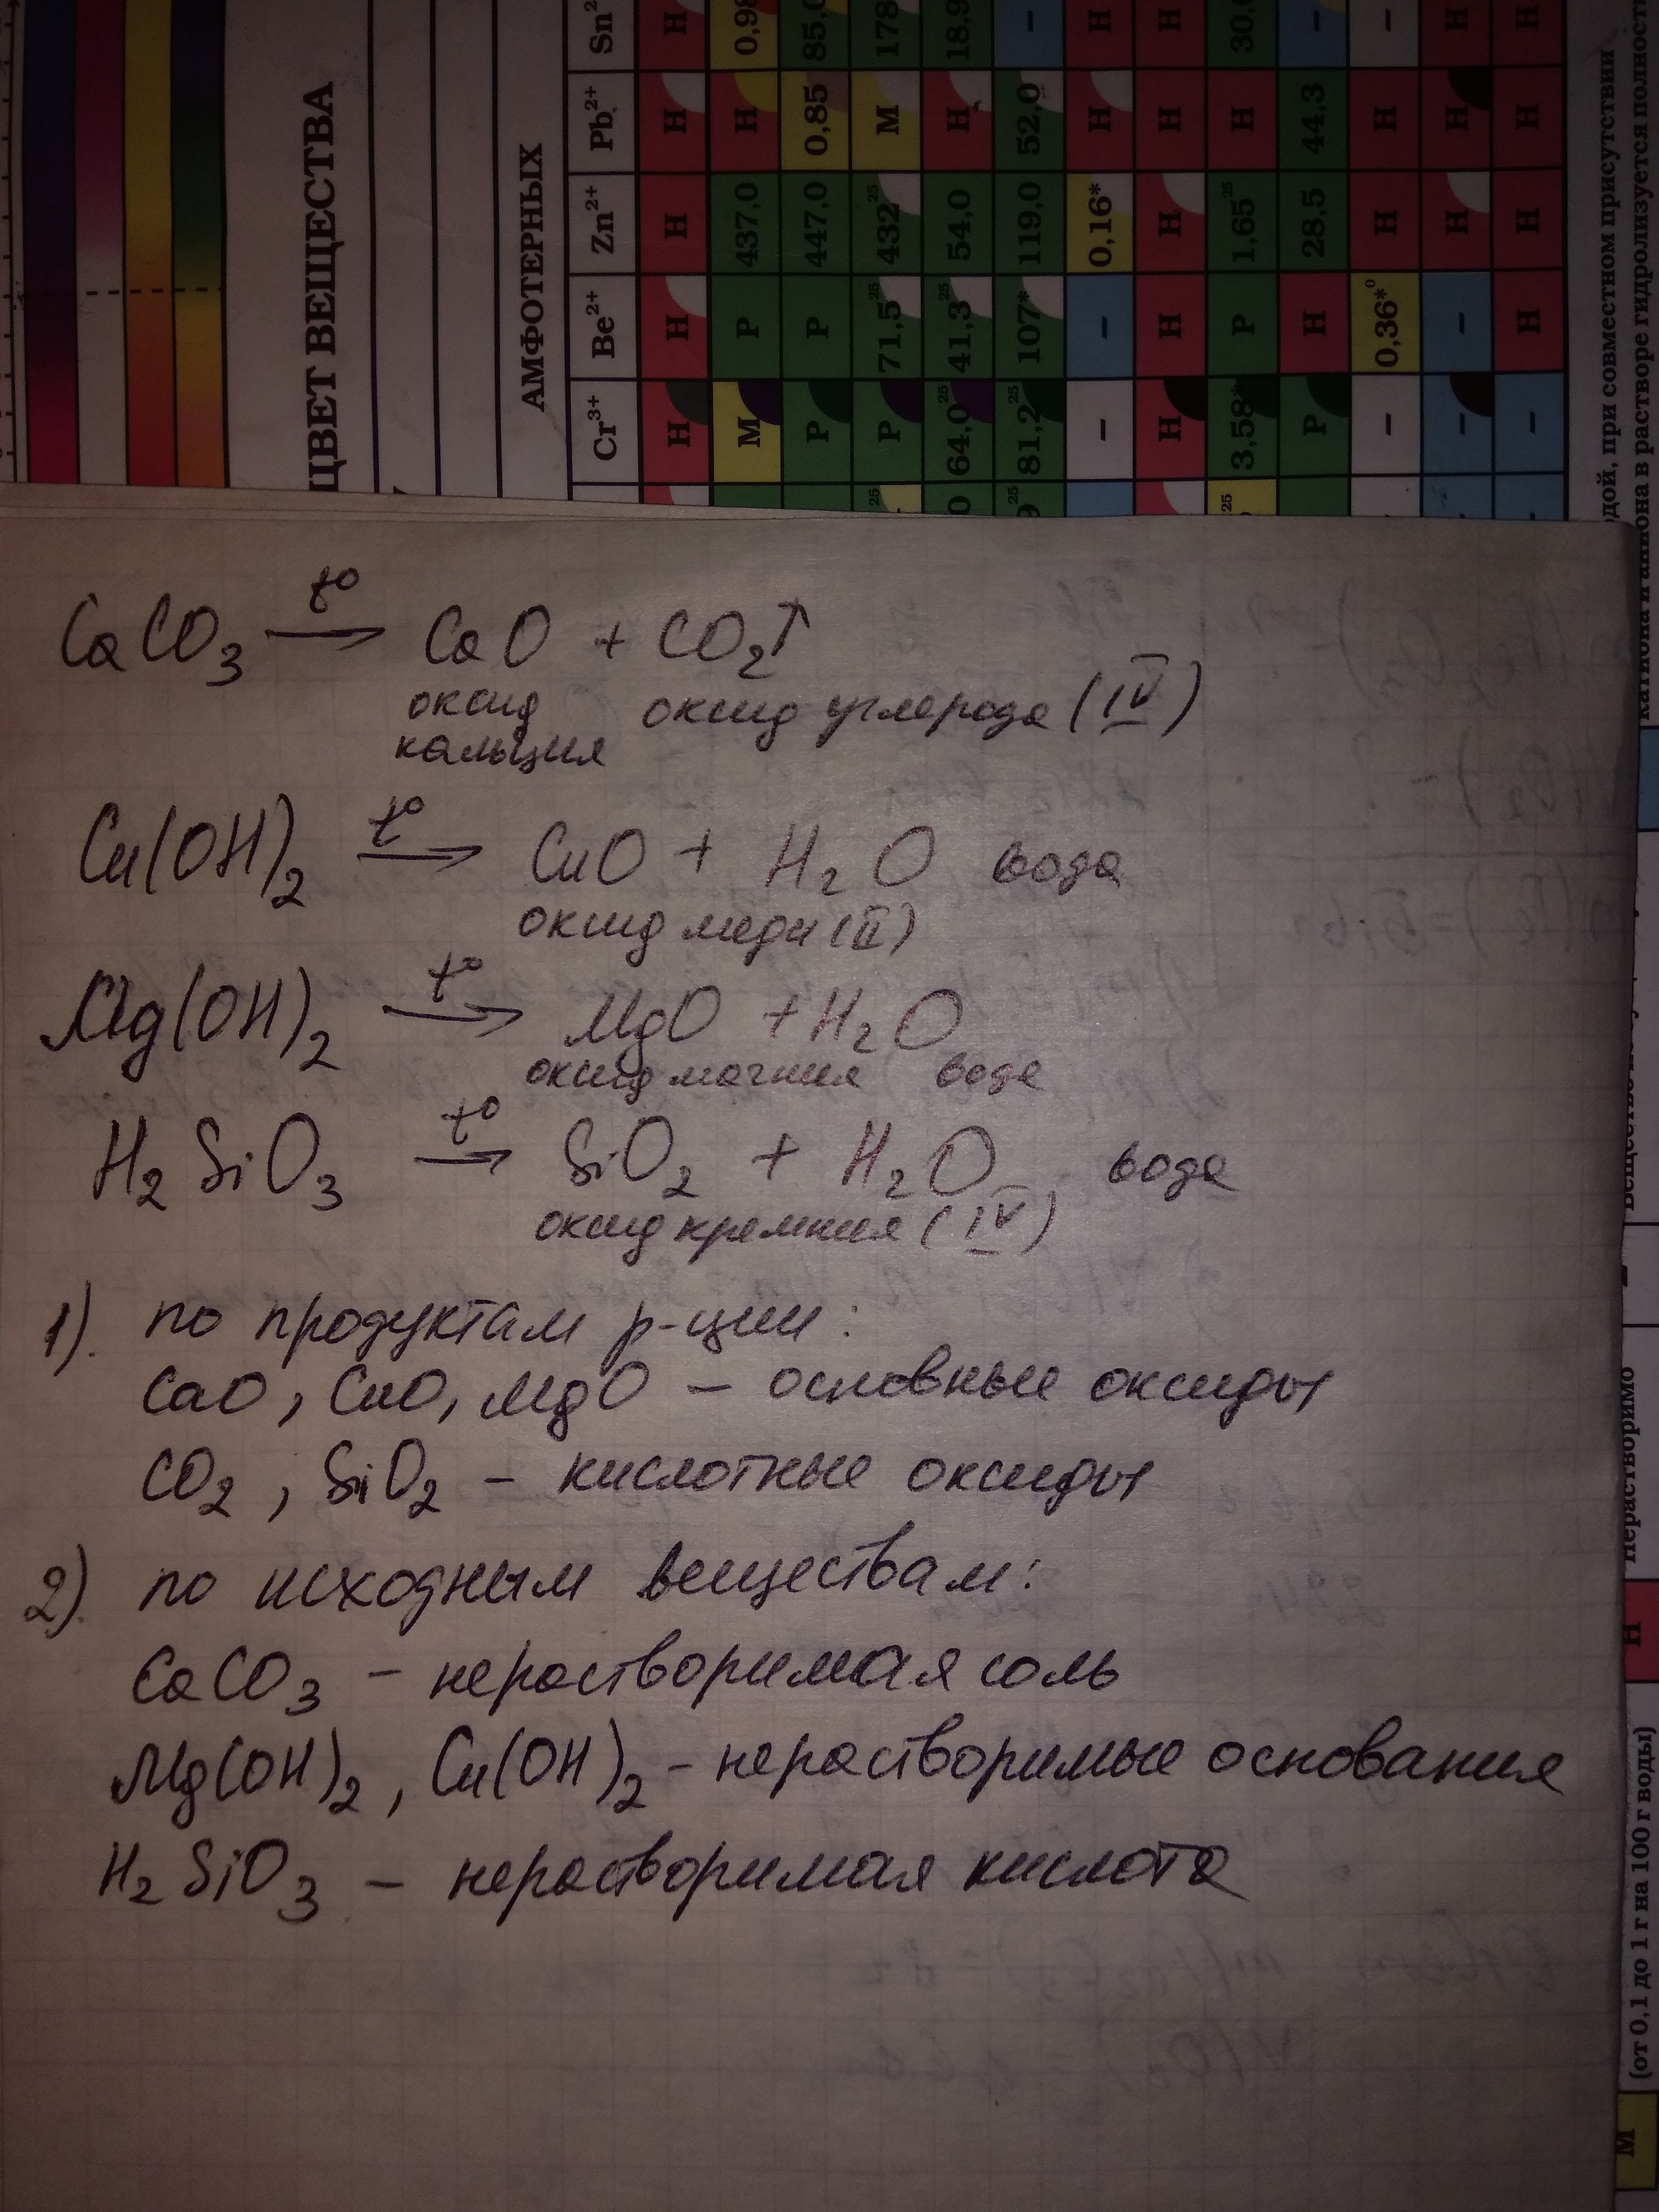 ЦВЕТ ВЕЩЕСТВА
АМФОТЕРНЫХ
Cr³⁺ Be²⁺ Zn²⁺ Pb²⁺ Sn²
Н Н Н Н Н
М Р 437,0 Н 0,98
Р Р 447,0 0,85 85,0
Р 71,5²⁵ 432²⁵ М 178
64,0²⁵ 41,3²⁵ 54,0 Н 18,9
81,2²⁵ 107* 119,0 52,0 –
– – 0,16* Н Н
Н Н Н Н Н
3,58* Р 1,65²⁵ Н 30,0
Р Н 28,5 44,3 –
– 0,36*⁰ Н Н –
– – Н Н Н
– Н Н Н Н
одой, при совместном присутствии
катиона и аниона в растворе гидролизуется полность
CaCO₃ t° → CaO + CO₂↑
оксид оксид углерода (IV)
кальция
Cu(OH)₂ t° → CuO + H₂O вода
оксид меди (II)
Mg(OH)₂ t° → MgO + H₂O
оксид магния вода
H₂SiO₃ t° → SiO₂ + H₂O вода
оксид кремния (IV)
1). по продуктам р-ции:
CaO, CuO, MgO – основные оксиды
CO₂, SiO₂ – кислотные оксиды
2). по исходным веществам:
CaCO₃ – нерастворимая соль
Mg(OH)₂, Cu(OH)₂ – нерастворимые основания
H₂SiO₃ – нерастворимая кислота
М (от 0,1 до 1 г на 100 г воды)
Н Нерастворимо
–